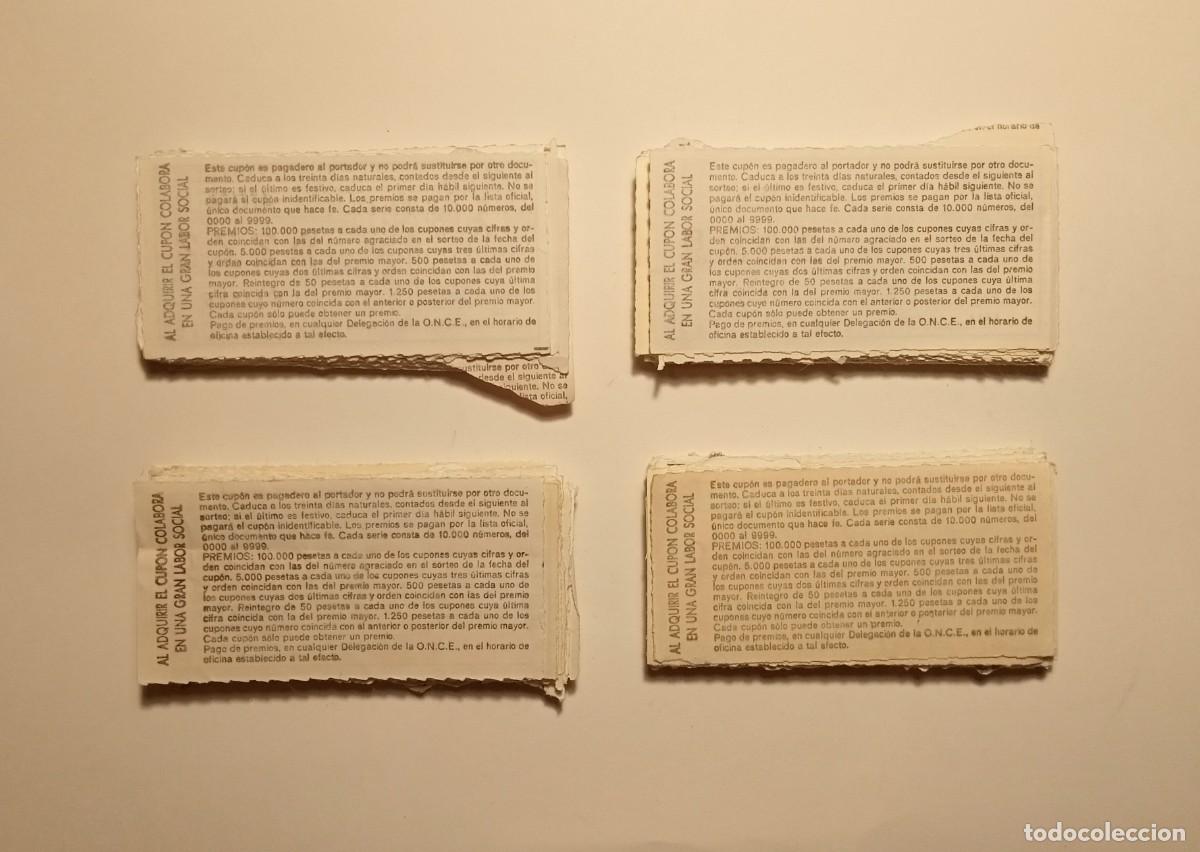 AL ADQUIRIR EL CUPON COLABORA
EN UNA GRAN LABOR SOCIAL
Este cupón es pagadero al portador y no podrá sustituirse por otro docu-
mento. Caduca a los treinta días naturales, contados desde el siguiente al
sorteo; si el último es festivo, caduca el primer día hábil siguiente. No se
pagará el cupón inidentificable. Los premios se pagan por la lista oficial,
único documento que hace fe. Cada serie consta de 10.000 números, del
0000 al 9999.
PREMIOS: 100.000 pesetas a cada uno de los cupones cuyas cifras y or-
den coincidan con las del número agraciado en el sorteo de la fecha del
cupón. 5.000 pesetas a cada uno de los cupones cuyas tres últimas cifras
y orden coincidan con las del premio mayor. 500 pesetas a cada uno de
los cupones cuyas dos últimas cifras y orden coincidan con las del premio
mayor. Reintegro de 50 pesetas a cada uno de los cupones cuya última
cifra coincida con la del premio mayor. 1.250 pesetas a cada uno de los
cupones cuyo número coincida con el anterior o posterior del premio mayor.
Cada cupón sólo puede obtener un premio.
Pago de premios, en cualquier Delegación de la O.N.C.E., en el horario de
oficina establecido a tal efecto.
ustituirse por otro
desde el siguiente al
siguiente. No se
lista oficial,
el horario de
AL ADQUIRIR EL CUPON COLABORA
EN UNA GRAN LABOR SOCIAL
Este cupón es pagadero al portador y no podrá sustituirse por otro docu-
mento. Caduca a los treinta días naturales, contados desde el siguiente al
sorteo; si el último es festivo, caduca el primer día hábil siguiente. No se
pagará el cupón inidentificable. Los premios se pagan por la lista oficial,
único documento que hace fe. Cada serie consta de 10.000 números, del
0000 al 9999.
PREMIOS: 100.000 pesetas a cada uno de los cupones cuyas cifras y or-
den coincidan con las del número agraciado en el sorteo de la fecha del
cupón. 5.000 pesetas a cada uno de los cupones cuyas tres últimas cifras
y orden coincidan con las del premio mayor. 500 pesetas a cada uno de
los cupones cuyas dos últimas cifras y orden coincidan con las del premio
mayor. Reintegro de 50 pesetas a cada uno de los cupones cuya última
cifra coincida con la del premio mayor. 1.250 pesetas a cada uno de los
cupones cuyo número coincida con el anterior o posterior del premio mayor.
Cada cupón sólo puede obtener un premio.
Pago de premios, en cualquier Delegación de la O.N.C.E., en el horario de
oficina establecido a tal efecto.
AL ADQUIRIR EL CUPON COLABORA
EN UNA GRAN LABOR SOCIAL
Este cupón es pagadero al portador y no podrá sustituirse por otro docu-
mento. Caduca a los treinta días naturales, contados desde el siguiente al
sorteo; si el último es festivo, caduca el primer día hábil siguiente. No se
pagará el cupón inidentificable. Los premios se pagan por la lista oficial,
único documento que hace fe. Cada serie consta de 10.000 números, del
0000 al 9999.
PREMIOS: 100.000 pesetas a cada uno de los cupones cuyas cifras y or-
den coincidan con las del número agraciado en el sorteo de la fecha del
cupón. 5.000 pesetas a cada uno de los cupones cuyas tres últimas cifras
y orden coincidan con las del premio mayor. 500 pesetas a cada uno de
los cupones cuyas dos últimas cifras y orden coincidan con las del premio
mayor. Reintegro de 50 pesetas a cada uno de los cupones cuya última
cifra coincida con la del premio mayor. 1.250 pesetas a cada uno de los
cupones cuyo número coincida con el anterior o posterior del premio mayor.
Cada cupón sólo puede obtener un premio.
Pago de premios, en cualquier Delegación de la O.N.C.E., en el horario de
oficina establecido a tal efecto.
AL ADQUIRIR EL CUPON COLABORA
EN UNA GRAN LABOR SOCIAL
Este cupón es pagadero al portador y no podrá sustituirse por otro docu-
mento. Caduca a los treinta días naturales, contados desde el siguiente al
sorteo; si el último es festivo, caduca el primer día hábil siguiente. No se
pagará el cupón inidentificable. Los premios se pagan por la lista oficial,
único documento que hace fe. Cada serie consta de 10.000 números, del
0000 al 9999.
PREMIOS: 100.000 pesetas a cada uno de los cupones cuyas cifras y or-
den coincidan con las del número agraciado en el sorteo de la fecha del
cupón. 5.000 pesetas a cada uno de los cupones cuyas tres últimas cifras
y orden coincidan con las del premio mayor. 500 pesetas a cada uno de
los cupones cuyas dos últimas cifras y orden coincidan con las del premio
mayor. Reintegro de 50 pesetas a cada uno de los cupones cuya última
cifra coincida con la del premio mayor. 1.250 pesetas a cada uno de los
cupones cuyo número coincida con el anterior o posterior del premio mayor.
Cada cupón sólo puede obtener un premio.
Pago de premios, en cualquier Delegación de la O.N.C.E., en el horario de
oficina establecido a tal efecto.
todocoleccion